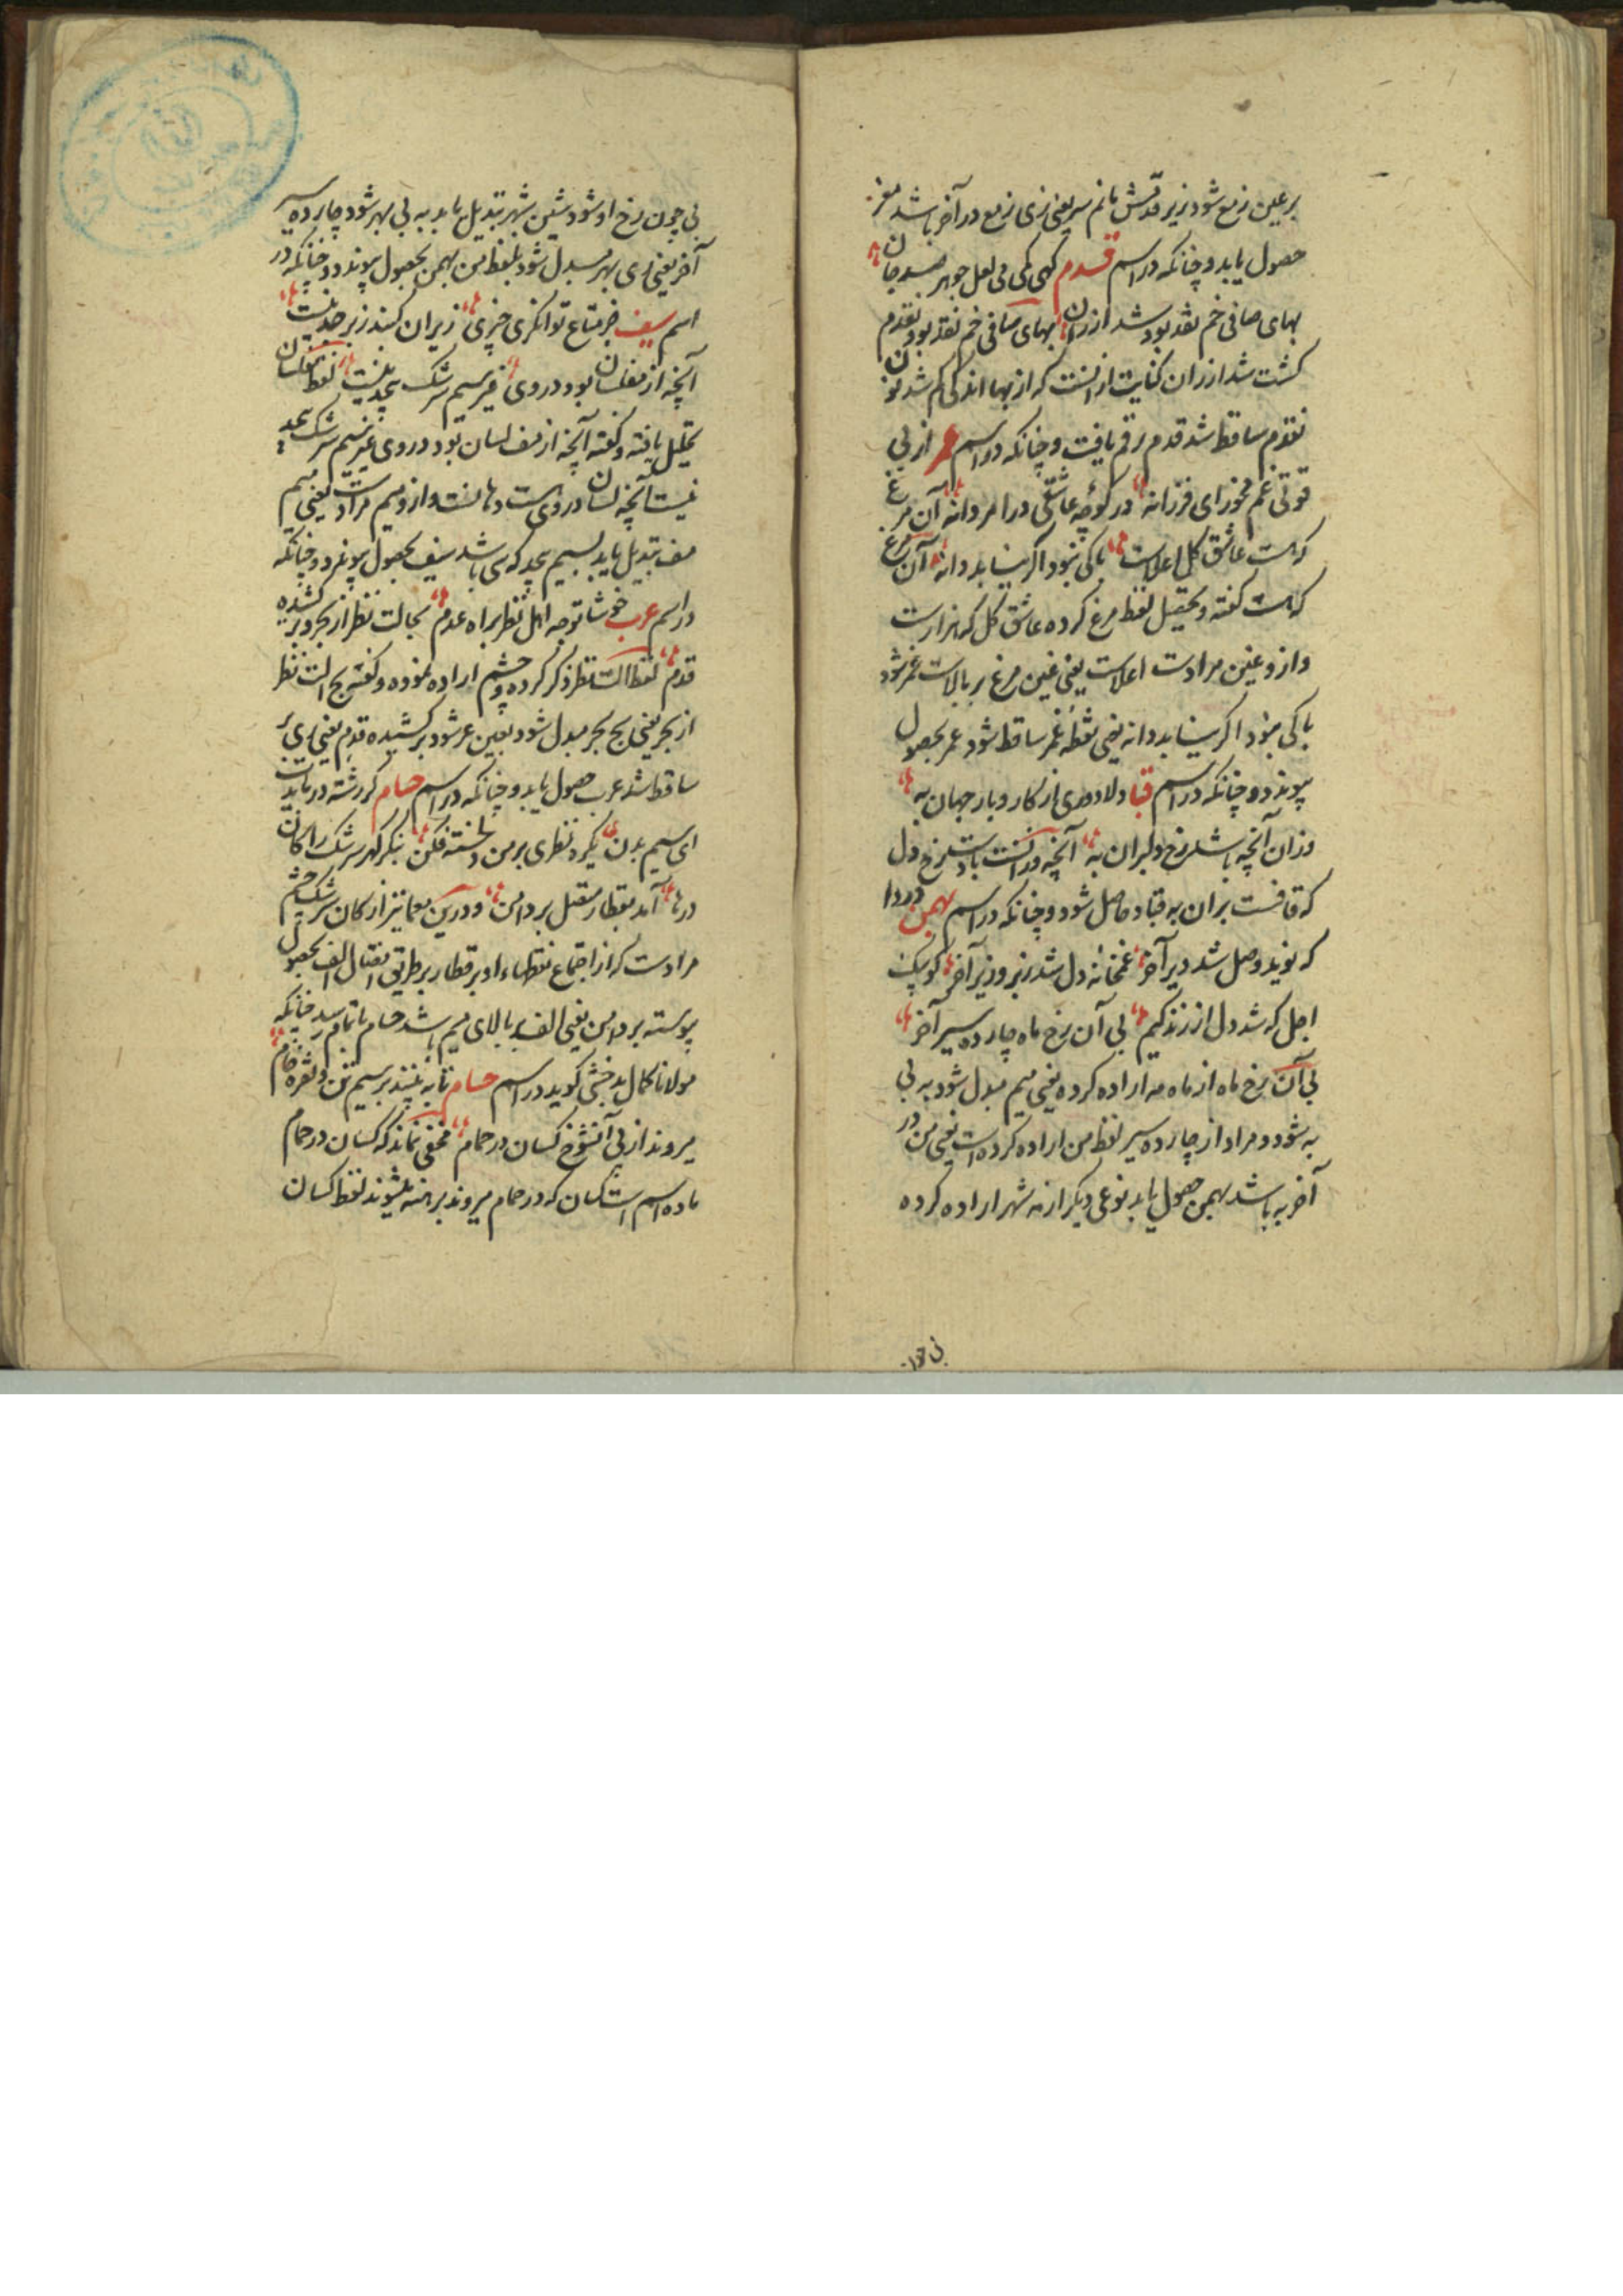 بر عین زبع شود زیر قدش بانم سر یعنی زی زبع در آخر باشد
حصول یابد و چنانکه در اسم قدم کهی کمی می لعل جوهر صد جان
بهای صافی خم نقد بود شد ارزان بهای صافی خم نقد بود نقدم
کشت شد ارزان کنایت از انست که از بها اندکی کم شد نون
نقدم ساقط شد قدم رقم یافت و چنانکه در اسم عمر از بی
قوتی غم مخور ای فرزانه در کوچه عاشقی درا مردانه آن مرغ
که هست عاشق کل اعلاست باکی نبود اگر نیابد دانه آن مرغ
که هست کفته و بتحصیل لفظ مرغ کرده عاشق کل که هزارست
و ازو غین مرادست اعلاست یعنی غین مرغ بر بالاست غمر شود
باکی نبود اگر نیابد دانه یعنی نقطه غمر ساقط شود عمر بحصول
پیوندد و چنانکه در اسم قباد دلا دوری از کار و بار جهان به
وزان آنچه باشد رخ دلبران به آنچه در انست باد است رخ دل
که قافست بران به قباد حاصل شود و چنانکه در اسم بهمن دردا
که نوید وصل شد دیر آخر غمخانه دل شد زبر و زیر آخر کو پیک
اجل که شد دل از زندکیم بی آن رخ ماه چارده سیر آخر
بی آن رخ ماه از ماه مه اراده کرده یعنی میم مبدل شود به بی
به شود و مراد از چارده سیر لفظ من اراده کرده است یعنی من در
آخر به باشد بهمن حصول یابد نوعی دیکر از مه شهر اراده کرده
بی چون رخ او شود شین شهر تبدیل یابد به بی بهر شود چارده سیر
آخر یعنی رای بهر مبدل شود بلفظ من بهمن بحصول پیوندد و چنانکه در
اسم سیف جز متاع توانکری چیزی زیر ان کنبد زبرجد نیست
آنچه از مفلسان بود در وی غیر سیم سرشک بیحد نیست لفظ مفلسان
تحلیل یافته و کفته آنچه از مف لسان بود در وی غیر سیم سرشک بیحد
نیست آنچه لسان در وی است دهانست و ازو میم مرادست یعنی میم
مف تبدیل یابد بسیم بیحد که سی باشد سیف بحصول پیوندد و چنانکه
در اسم عرب خوشا توجه اهل نظر براه عدم بحالت نظر از بحر و بر کشیده
قدم لفظ الت نظر ذکر کرده و چشم اراده نموده و کفته بح الت نظر
از بحر یعنی بح بحر مبدل شود بعین عر شود بر کشیده قدم یعنی رای بر
ساقط شد عرب حصول یابد و چنانکه در اسم حسام کر رشته دریابی
ای سیم بدن یکره نظری بر من دلخسته فکن بنکر کهر سرشک را کان
درها آمد بقطار متصل بر دامن و درین معما نیز از کان سرشک چشم
مرادست که از اجتماع نقطهاء او بر قطار بر طریق اتصال الف بحصول
پیوسته بر دامن یعنی الف بر بالای میم باشد حسام باتمام رسید چنانکه
مولانا کمال بدخشی کوید در اسم حسام تا به بینند بر سیم تن و نقره خام
میروند از پی آنشوخ کسان در حمام مخفی نماند که کسان در حمام
ماده اسم است کسان که در حمام میروند برهنه میشوند لفظ کسان